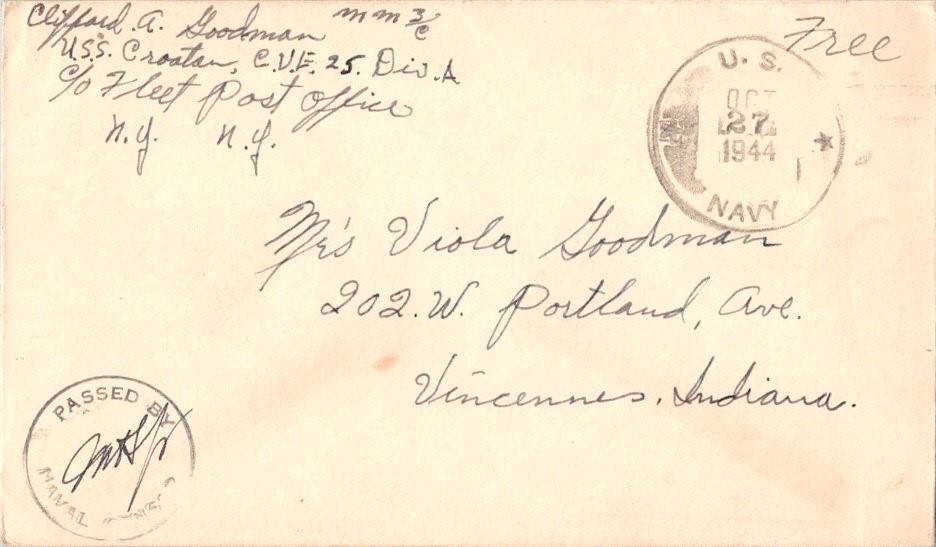 Clifford. A. Goodman MM 3/c
U.S.S. Croatan, C.V.E. 25. Div. A
c/o Fleet Post Office
N.Y. N.Y.
Free
U. S.
OCT
27
1944
NAVY
Mrs Viola Goodman
202. W. Portland, Ave.
Vincennes, Indiana.
PASSED BY
NAVAL